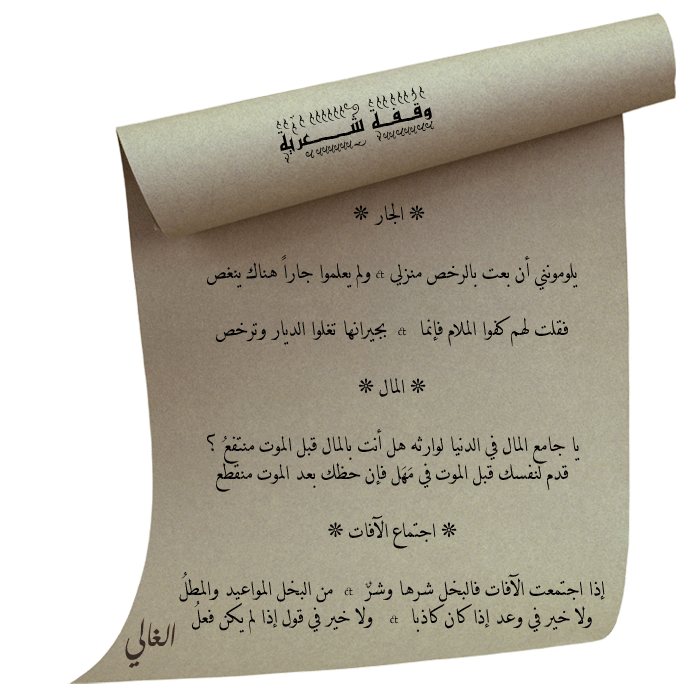 وقفة شعرية
❊ الجار ❊
يلومونني أن بعت بالرخص منزلي ولم يعلموا جاراً هناك ينغص
فقلت لهم كفوا الملام فإنما بجيرانها تغلوا الديار وترخص
❊ المال ❊
يا جامع المال في الدنيا لوارثه هل أنت بالمال قبل الموت منتفعُ ؟
قدم لنفسك قبل الموت في مَهَل فإن حظك بعد الموت منقطع
❊ اجتماع الآفات ❊
إذا اجتمعت الآفات فالبخل شرها وشرٌ من البخل المواعيد والمطلُ
ولا خير في وعد إذا كان كاذبا ولا خير في قول إذا لم يكن فعلُ
الغالي